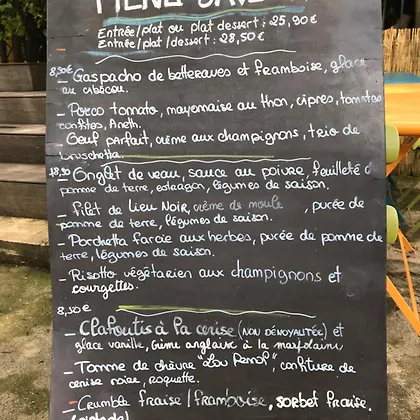 MENU
Entrée/plat ou plat dessert : 25,90€
Entrée/plat/dessert : 28,50€
8,50€
- Gaspacho de betteraves et framboise, glace
au
- Porco tomato, mayonaise au thon, cipres, tomates
confites, Aneth.
Oeuf parfait, crème aux champignons, trio de
bruschetta.
18,90
- Onglet de veau, sauce au poivre, feuilleté de
pomme de terre, estragon, légumes de saison.
- Filet de Lieu Noir, crème de moule , purée de
pomme de terre, légumes de saison.
- Porchetta farcie aux herbes, purée de pomme de
terre, légumes de saison.
- Risotto végétarien aux champignons et
courgettes.
8,50€
- Clafoutis à la cerise (NON DÉNOYAUTÉE) et
glace vanille, Crème anglaise à la marjolaine
- Tomme de chèvre "Lou Pennol", confiture de
cerise noire, roquette.
- Crumble fraise/framboise, sorbet fraise.